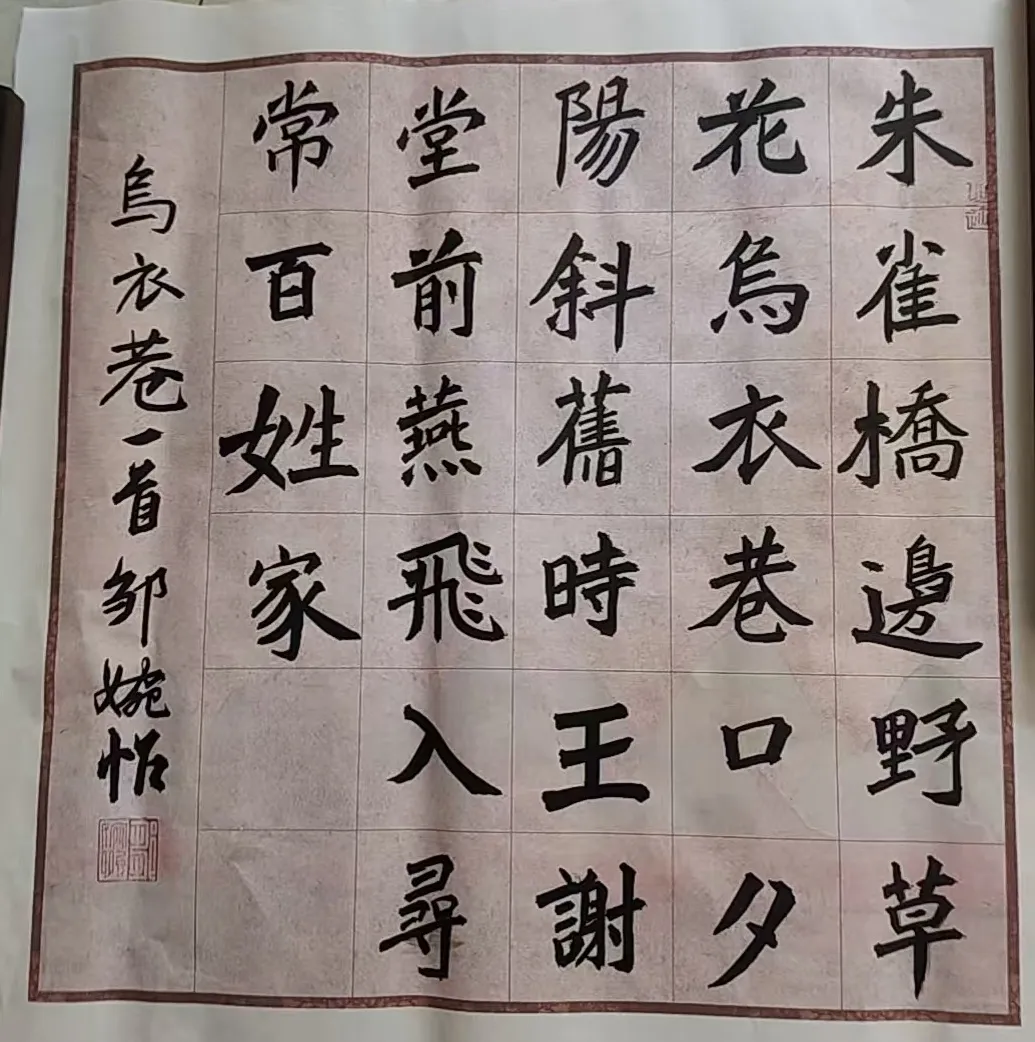 朱雀橋邊野草
花烏衣巷口夕
陽斜舊時王謝
堂前燕飛入尋
常百姓家
烏衣巷一首邹婉怡